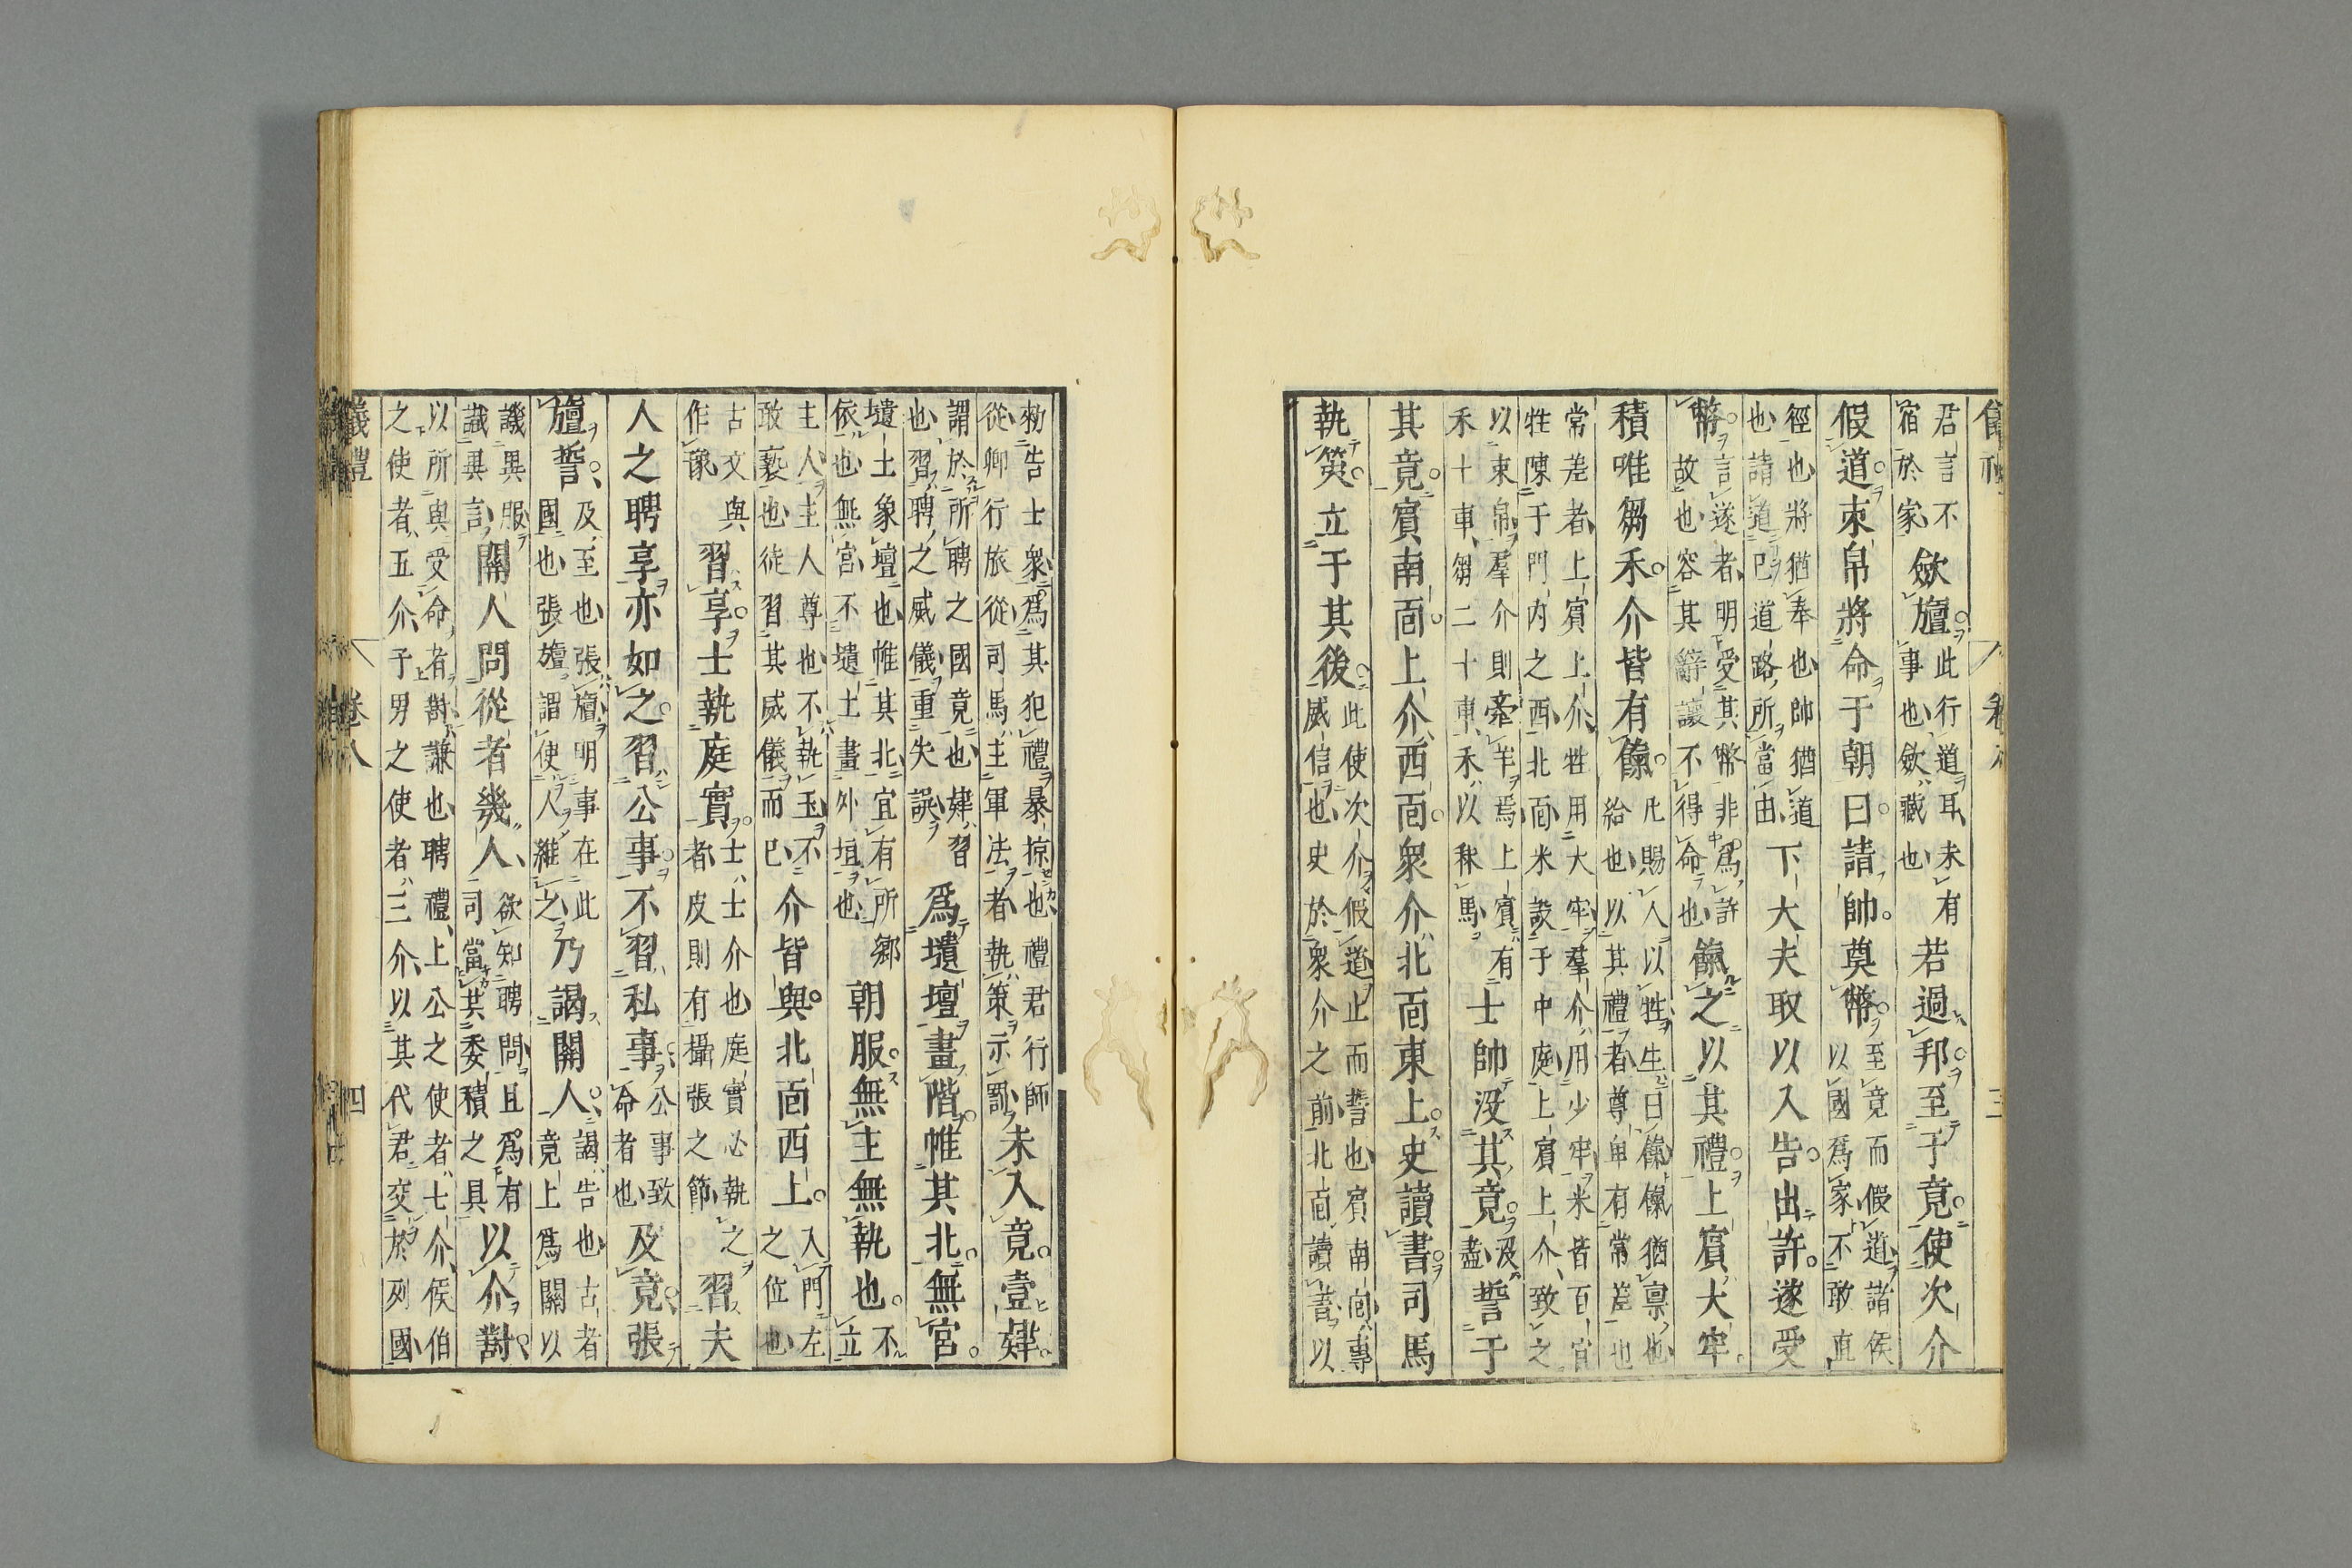 君言不宿於家斂旜此行道耳未有事也斂藏也若過邦至于竟使次介
假道束帛將命于朝曰請帥奠幣至竟而假道諸侯以國爲家不敢直
徑也將猶奉也帥猶道也請道己道路所當由下大夫取以入告出許遂受
幣言遂者明受其幣非爲許故也容其辭讓不得命也餼之以其禮上賓大牢
積唯芻禾介皆有餼凡賜人以牲生曰餼餼猶稟也給也以其禮者尊卑有常差也
常差者上賓上介牲用大牢羣介用少牢米皆百筥牲陳于門内之西北面米設于中庭上賓上介致之
以束帛羣介則牽羊焉上賓有禾十車芻二十車禾以秣馬士帥沒其竟盡及誓于
其竟賓南面上介西面衆介北面東上史讀書司馬
執筴立于其後此使次介假道止而誓也賓南面專威信也史於衆介之前北面讀書以
勑告士衆爲其犯禮暴掠也禮君行師從卿行旅從司馬主軍法者執策示罰未入竟壹肄
謂於所聘之國竟也肄習也習聘之威儀重失誤爲壝壇畫階帷其北無宮
壝土象壇也帷其北宜有所鄉依也無宮不壝土畫外垣也朝服無主無執也不立
主人主人尊也不執玉不敢褻也徒習其威儀而已介皆與北面西上入門左之位也
古文與作豫習享士執庭實士士介也庭實必執之者皮則有攝張之節習夫
人之聘享亦如之習公事不習私事公事致命者也及竟張
旜誓及至也張旜明事在此國也張旜謂使人維之乃謁關人謁告也古者竟上爲關以
譏異服識異言關人問從者幾人欲知聘問且爲有司當共委積之具以介對
以所與受命者對謙也聘禮上公之使者七介侯伯之使者五介子男之使者三介以其代君交於列國
儀禮 卷八 四